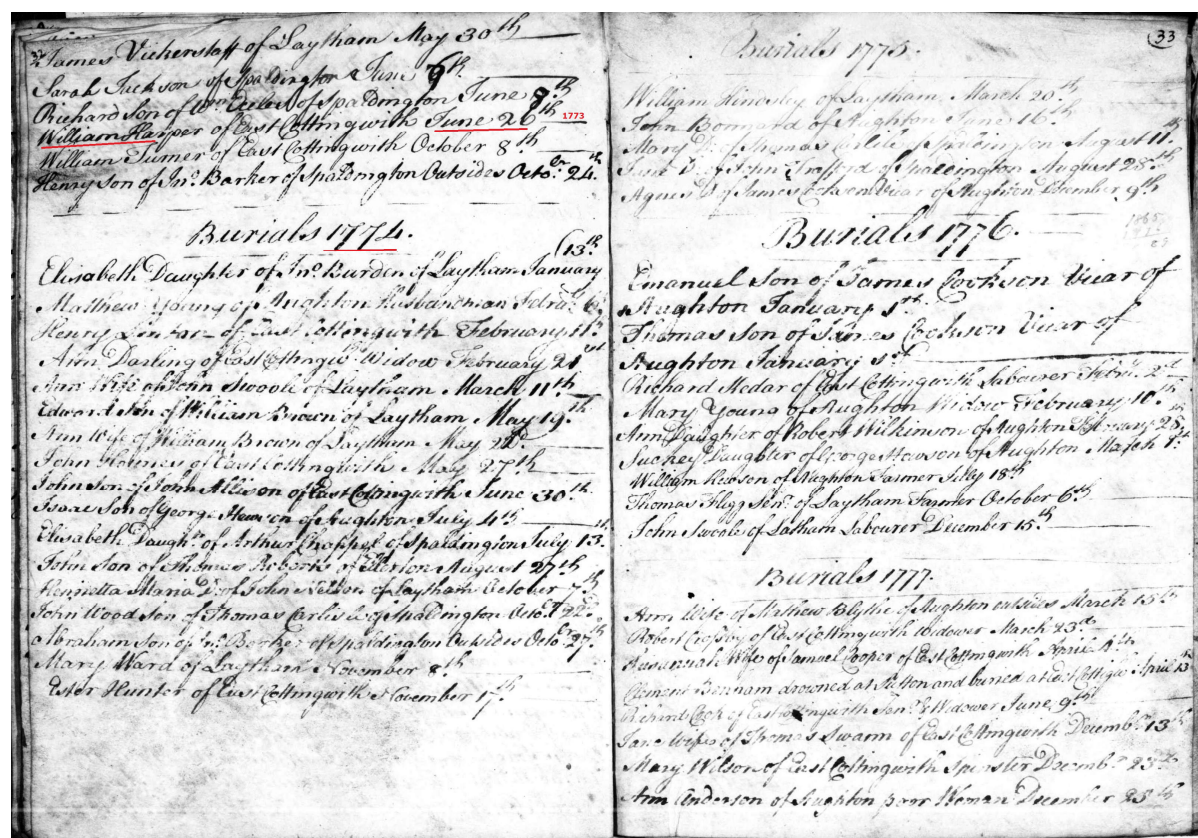 32
James Vickerstaff of Laytham May 30th
Sarah Jackson of Spaldington June 9th
Richard son of Wm of Spaldington June 8th
William Harper of East Cottingwith June 26th 1773
William Turner of East Cottingwith October 8th
Henry Son of Jno. Barker of Spaldington Outsides Octobr. 24th
Burials 1774.
Elisabeth Daughter of Jno. Burden of Laytham January (13th
Matthew Young of Aughton Husbandman Febru
Henry of East Cottingwith February 11th
Ann Darling of East Cottingwth Widow February 21st
Ann Wife of John Swoole of Laytham March 11th
Edward Son of William Brown of Laytham May 19th
Ann Wife of William Brown of Laytham May 22d
John Holmes of East Cottingwith May 27th
John Son of John Allison of East Cottingwith June 30th
Isaac Son of George Hewson of Aughton July 4th
Elisabeth Daughr. of Arthur Chappel of Spaldington July 13th
John Son of Thomas Roberts of Ellerton August 27th
Henrietta Maria D. of John Nelson of Laytham October 7th
John Wood Son of Thomas Carlisle of Spaldington Octobr. 22d
Abraham Son of Jno. Barker of Spaldington Outsides Octobr. 27th
Mary Ward of Laytham November 8th
Ester Hunter of East Cottingwith November 17th
33
Burials 1775.
William Hinosley of Laytham March 20th
John Bonnard of Aughton June 16th
Mary D. of Thomas Carlisle of Spaldington August 11th
Jane D. of John Trafford of Spaldington August 28th
Agnes D. of James Cookson Vicar of Aughton December 9th
Burials 1776.
Emanuel Son of James Cookson Vicar of
Aughton January 1st
Thomas Son of James Cookson Vicar of
Aughton January 1st
Richard Modar of East Cottingwith Labourer Febru. 2d
Mary Young of Aughton Widow February 10th
Ann Daughter of Robert Wilkinson of Aughton February 28th
Suckey Daughter of George Hewson of Aughton March
William Hewson of Aughton Farmer July 18th
Thomas Fligg Senr. of Laytham Farmer October 6th
John Swoole of Latham Labourer December 15th
Burials 1777.
Ann Wife of Mathew Blythe of Aughton outsides March 15th
Robert Cropby of East Cottingwith Widower March 23d
Susannah Wife of Samuel Cooper of East Cottingwith April 4th
Clement Bennam drowned at Sutton and buried at East Cottigw April 13th
Richard Cook of East Cottingwith Senr. & Widower June 9th
Jane Wife of Thomas Swann of East Cottingwith Decembr. 13th
Mary Wilson of East Cottingwith Spinster Decembr. 23d
Ann Anderson of Aughton poor Woman December 25th